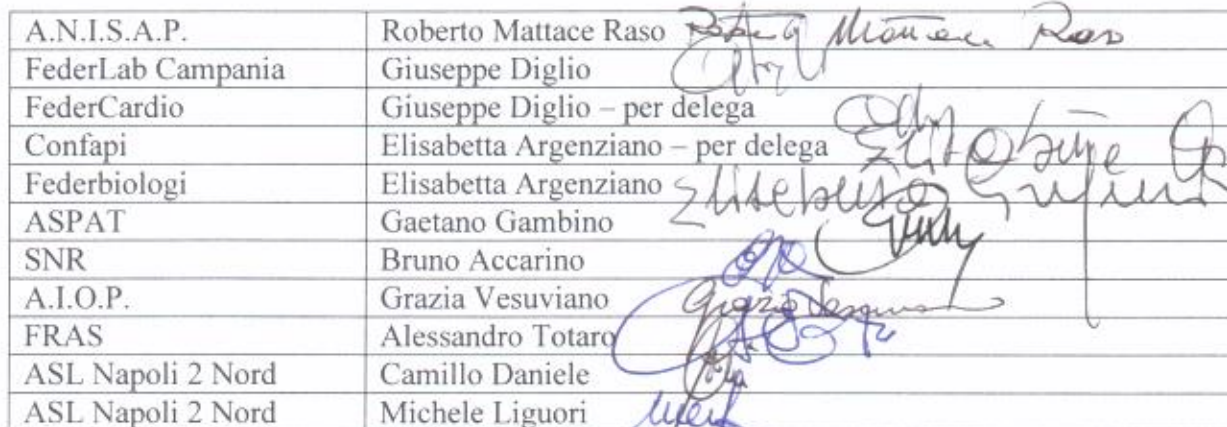 A.N.I.S.A.P. Roberto Mattace Raso Roberto Mattace Raso
FederLab Campania Giuseppe Diglio
FederCardio Giuseppe Diglio – per delega
Confapi Elisabetta Argenziano – per delega
Federbiologi Elisabetta Argenziano
ASPAT Gaetano Gambino
SNR Bruno Accarino
A.I.O.P. Grazia Vesuviano Grazia Vesuviano
FRAS Alessandro Totaro
ASL Napoli 2 Nord Camillo Daniele
ASL Napoli 2 Nord Michele Liguori